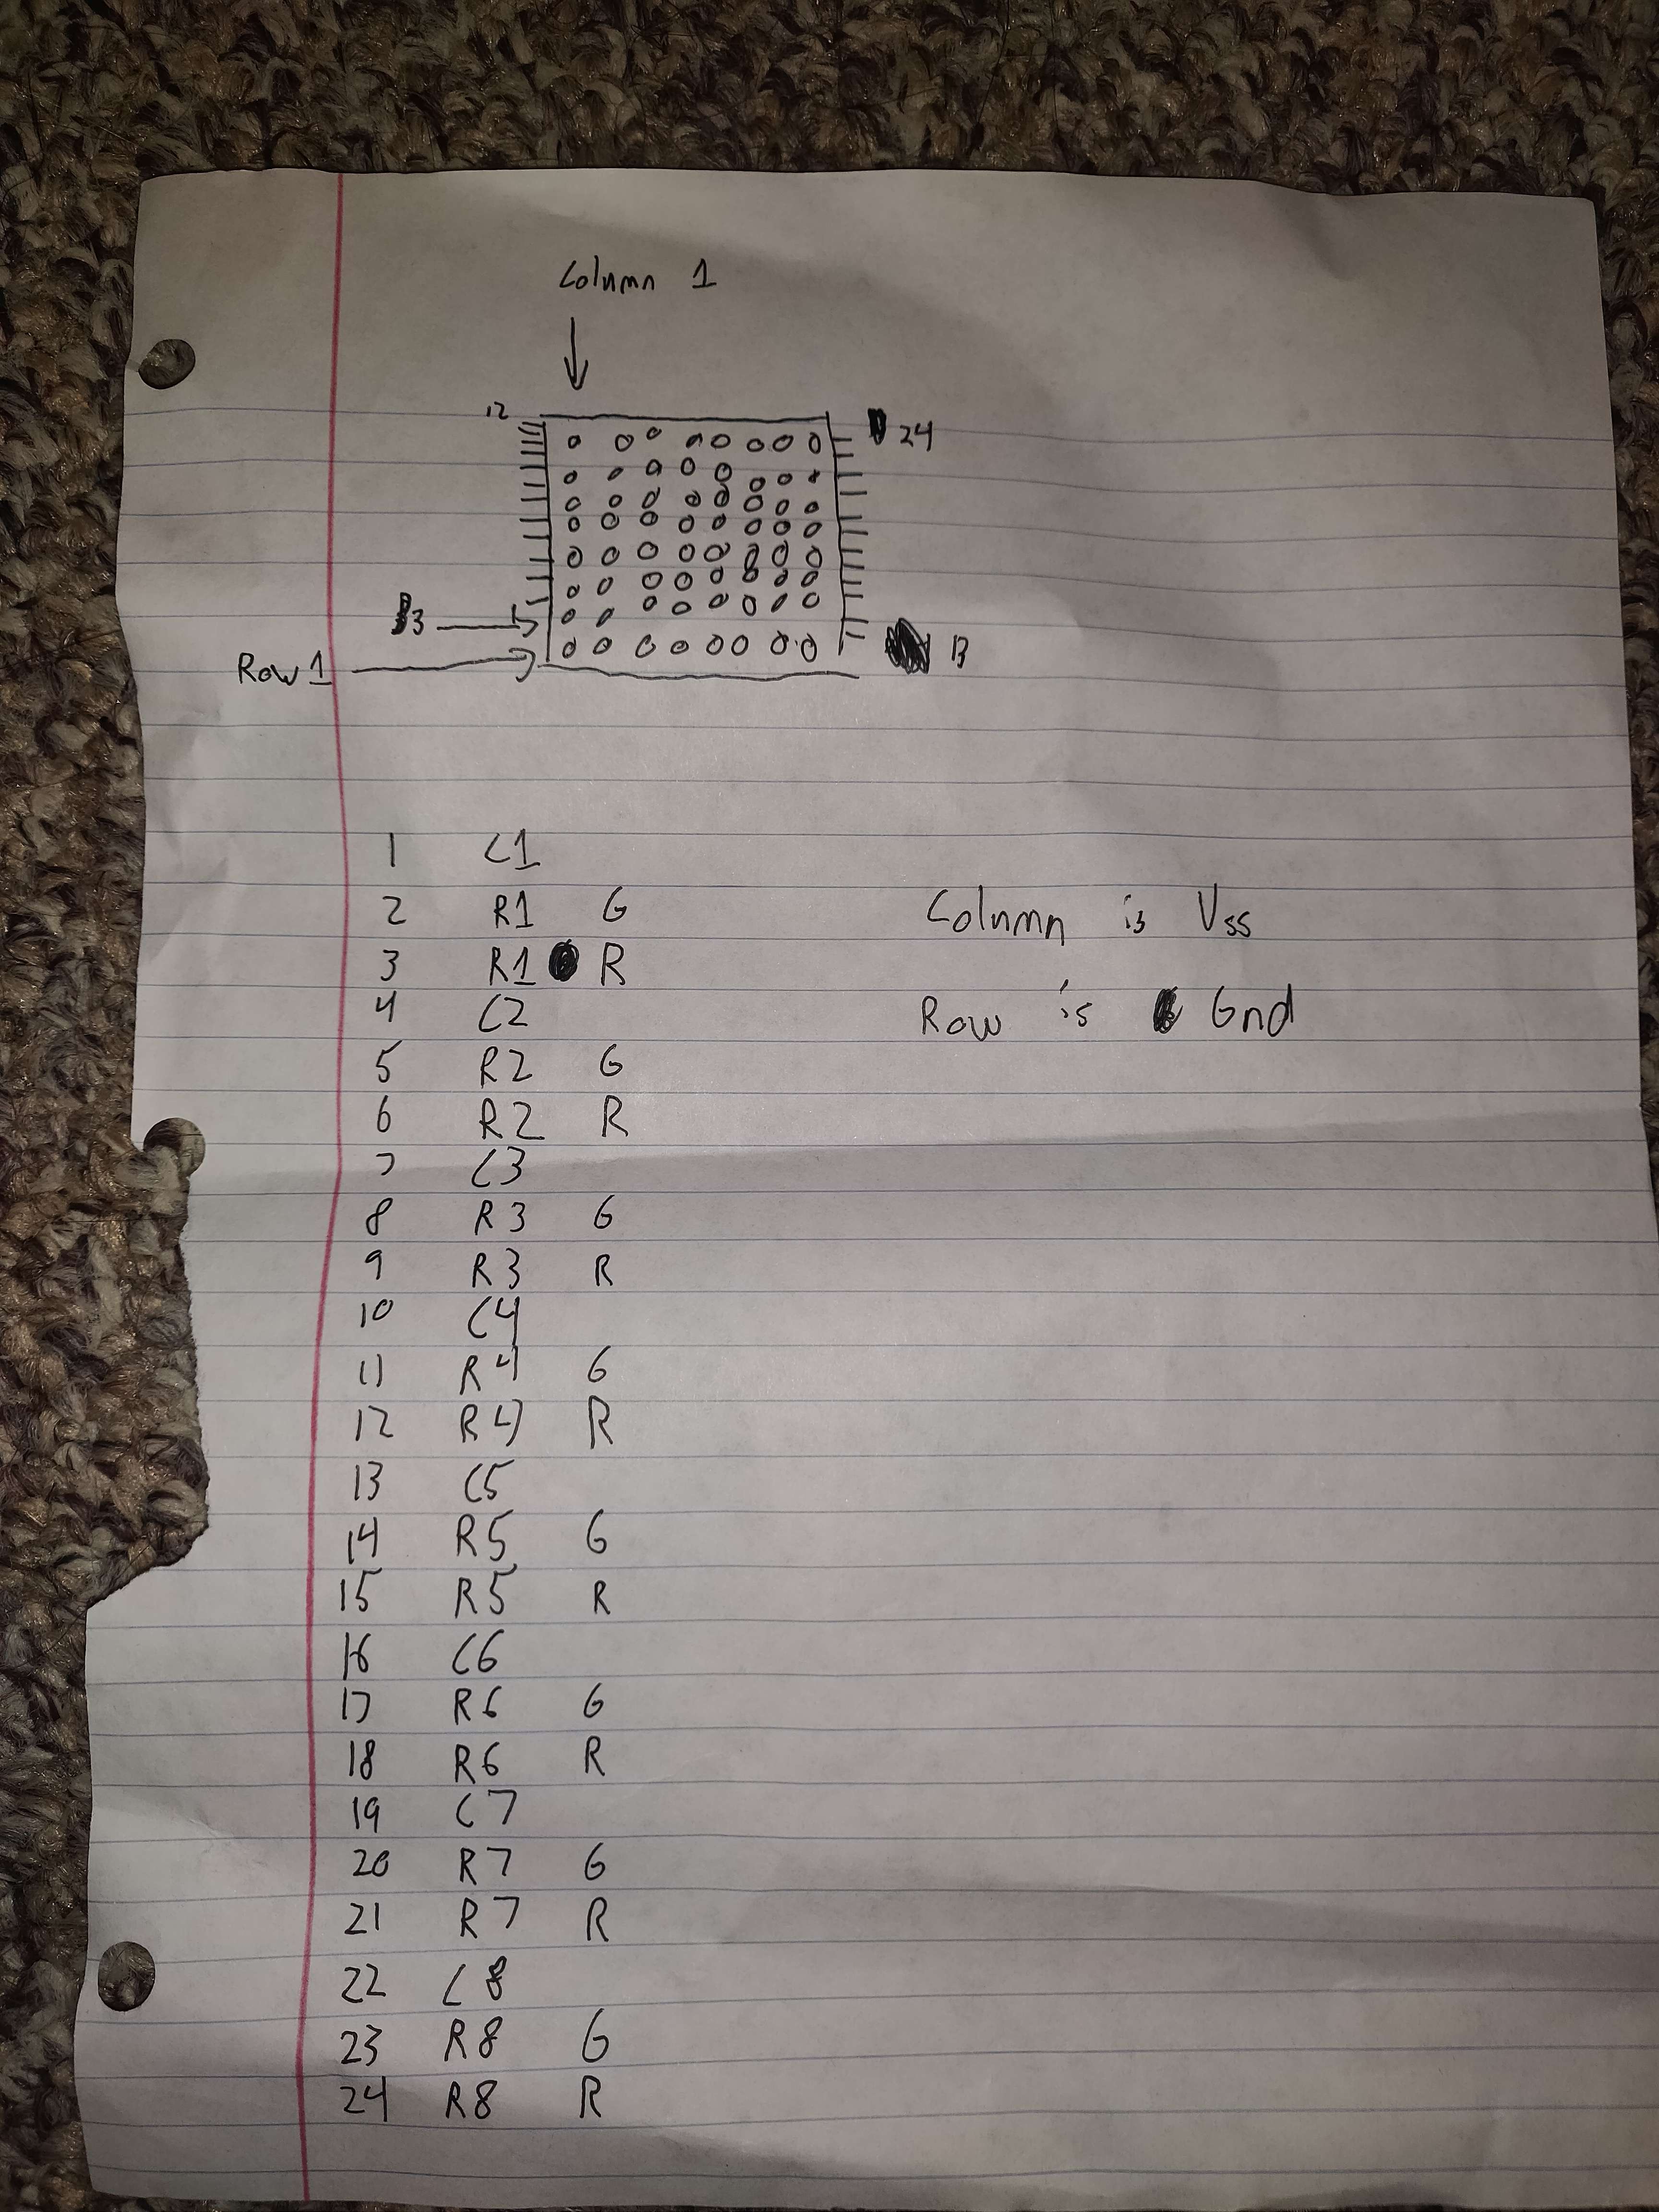 Column 1
12
24
3
13
Row 1
1 C1
2 R1 G
3 R1 R
4 C2
5 R2 G
6 R2 R
7 C3
8 R3 G
9 R3 R
10 C4
11 R4 G
12 R4 R
13 C5
14 R5 G
15 R5 R
16 C6
17 R6 G
18 R6 R
19 C7
20 R7 G
21 R7 R
22 C8
23 R8 G
24 R8 R
Column is Vss
Row is Gnd